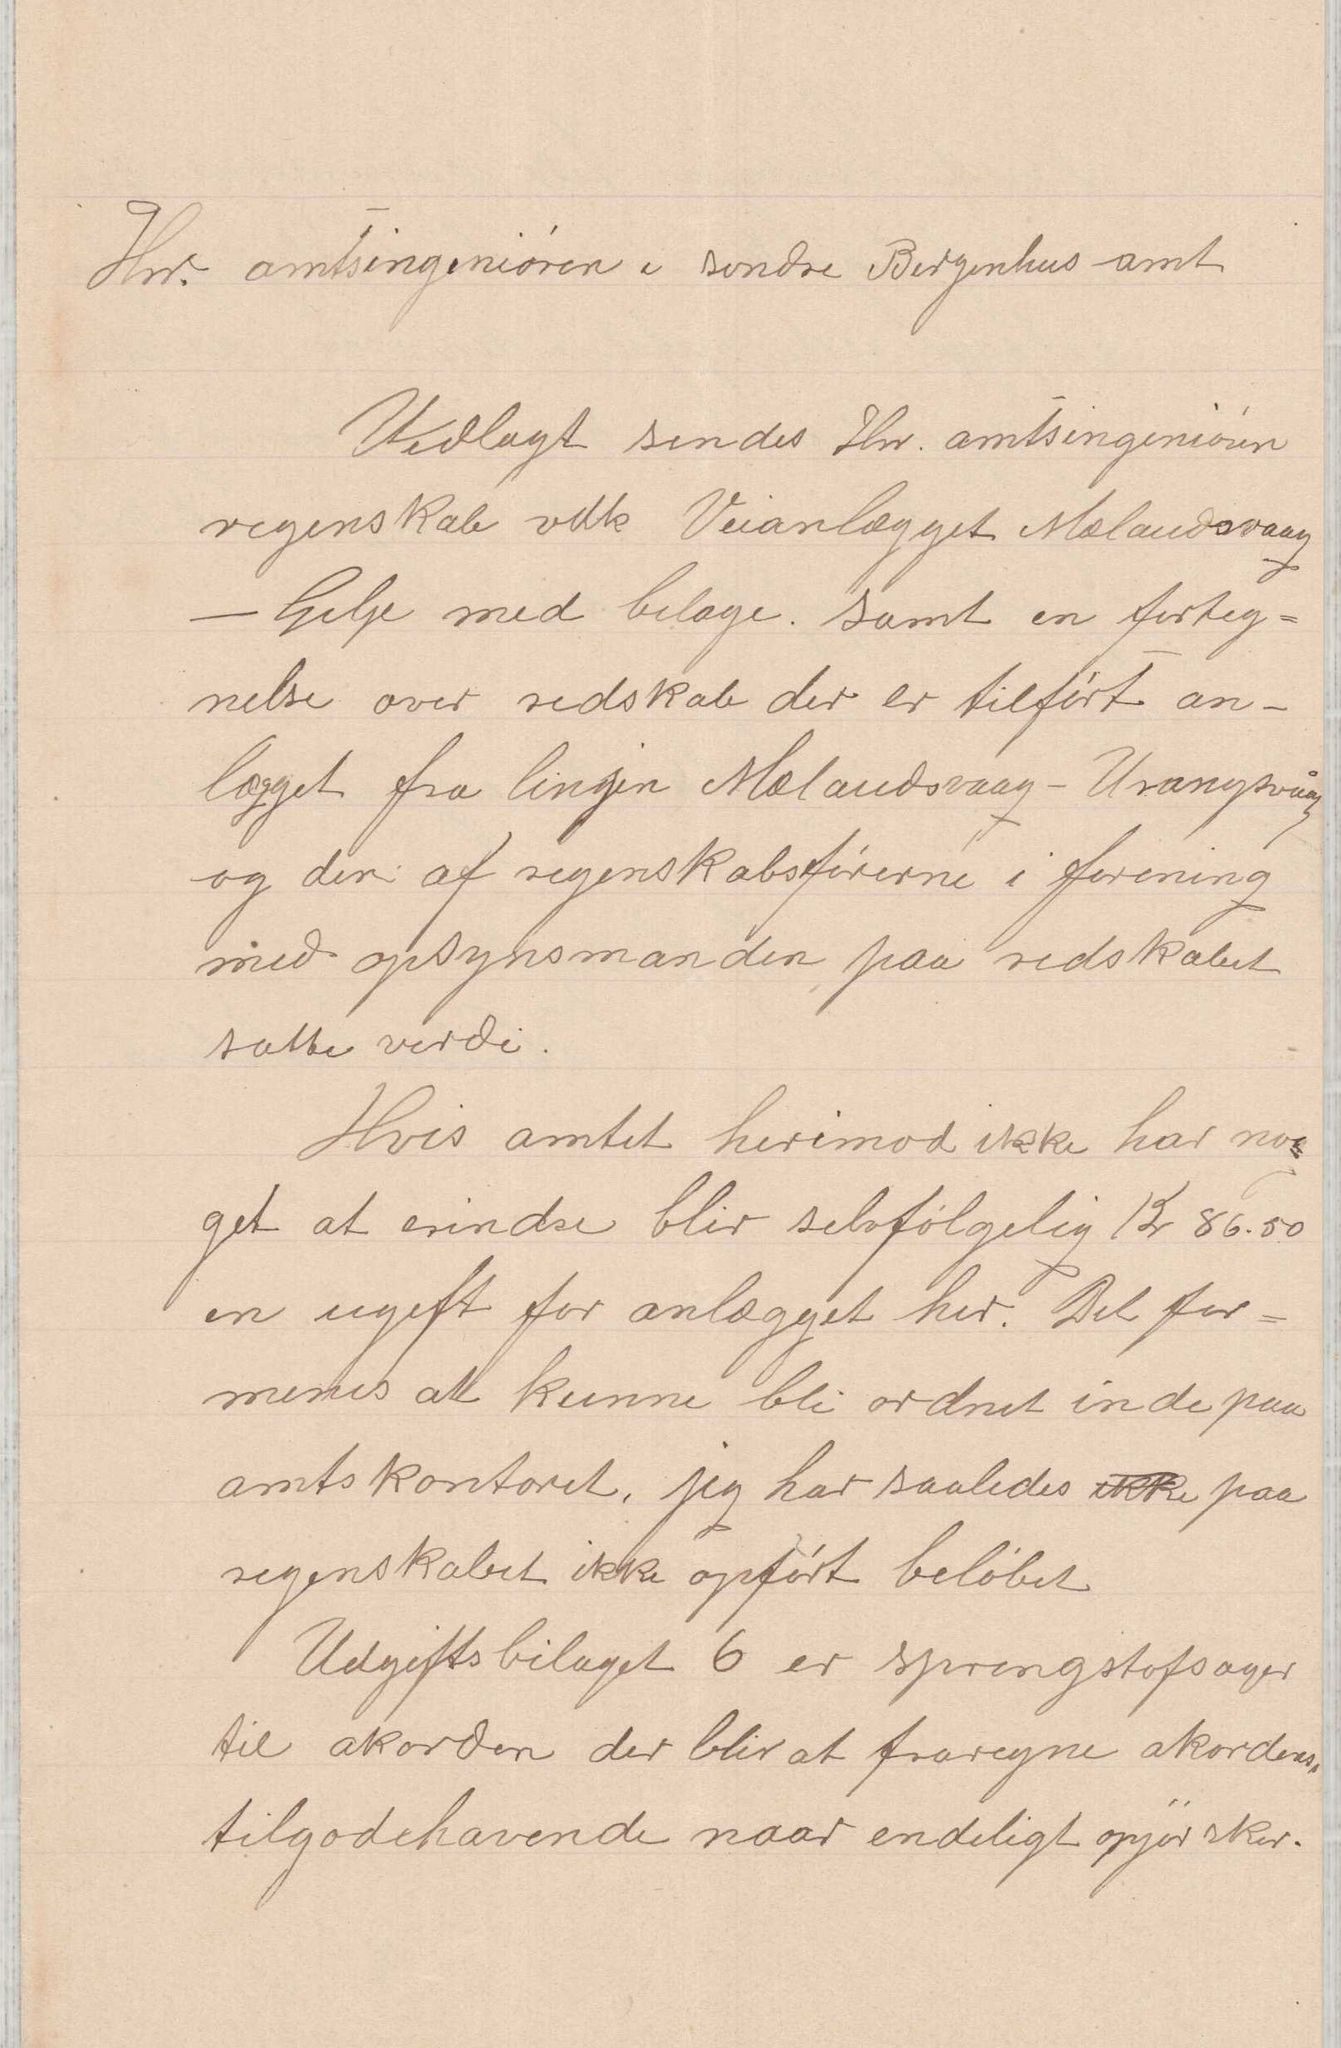 Hr. amtsingeniören i söndre Bergenhus amt
Vedlagt sendes Hr. amtsingeniören
regenskab vdk Veianlægget Mælandsvaag
— Gilje med bilage. samt en forteg=
nelse over redskab der er tilfört an-
lægget fra linjen Mælandsvaag - Urangsvåg
og den af regenskabsförerne i forening
med opsynsmanden paa redskabet
satte verdi.
Hvis amtet herimod ikke har noe
get at erindre blir selvfölgelig Kr 86.50
en ugift for anlægget her. Det for=
menes att kunne bli ordnet inde paa
amtskontoret, jeg har saaledes ikke paa
regenskabet ikke opfört belöbet
Udgiftsbilaget 6 er sprengstofsager
til akorden der blir at fraregne akordens
tilgodehavende naar endeligt opjör sker.